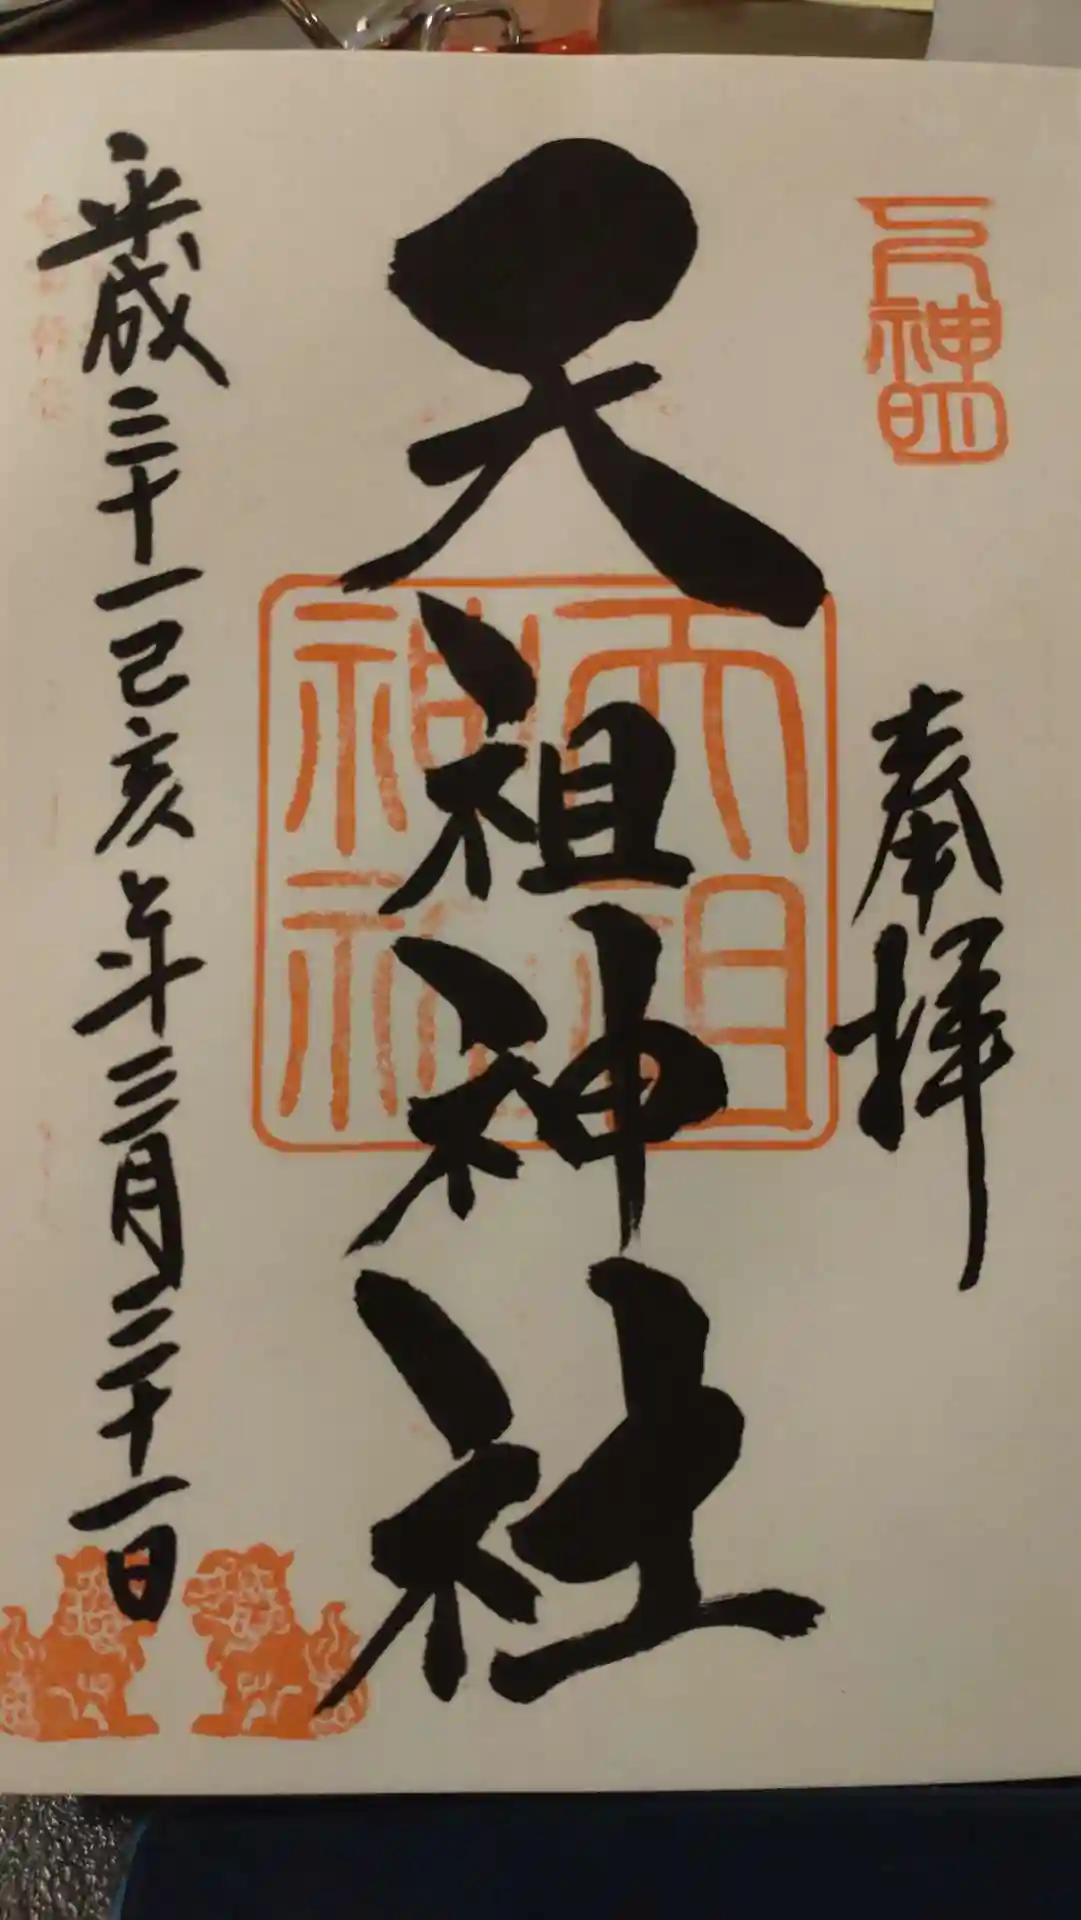 元神明
奉拝
天祖神社
天祖神社
平成三十一己亥年三月二十一日